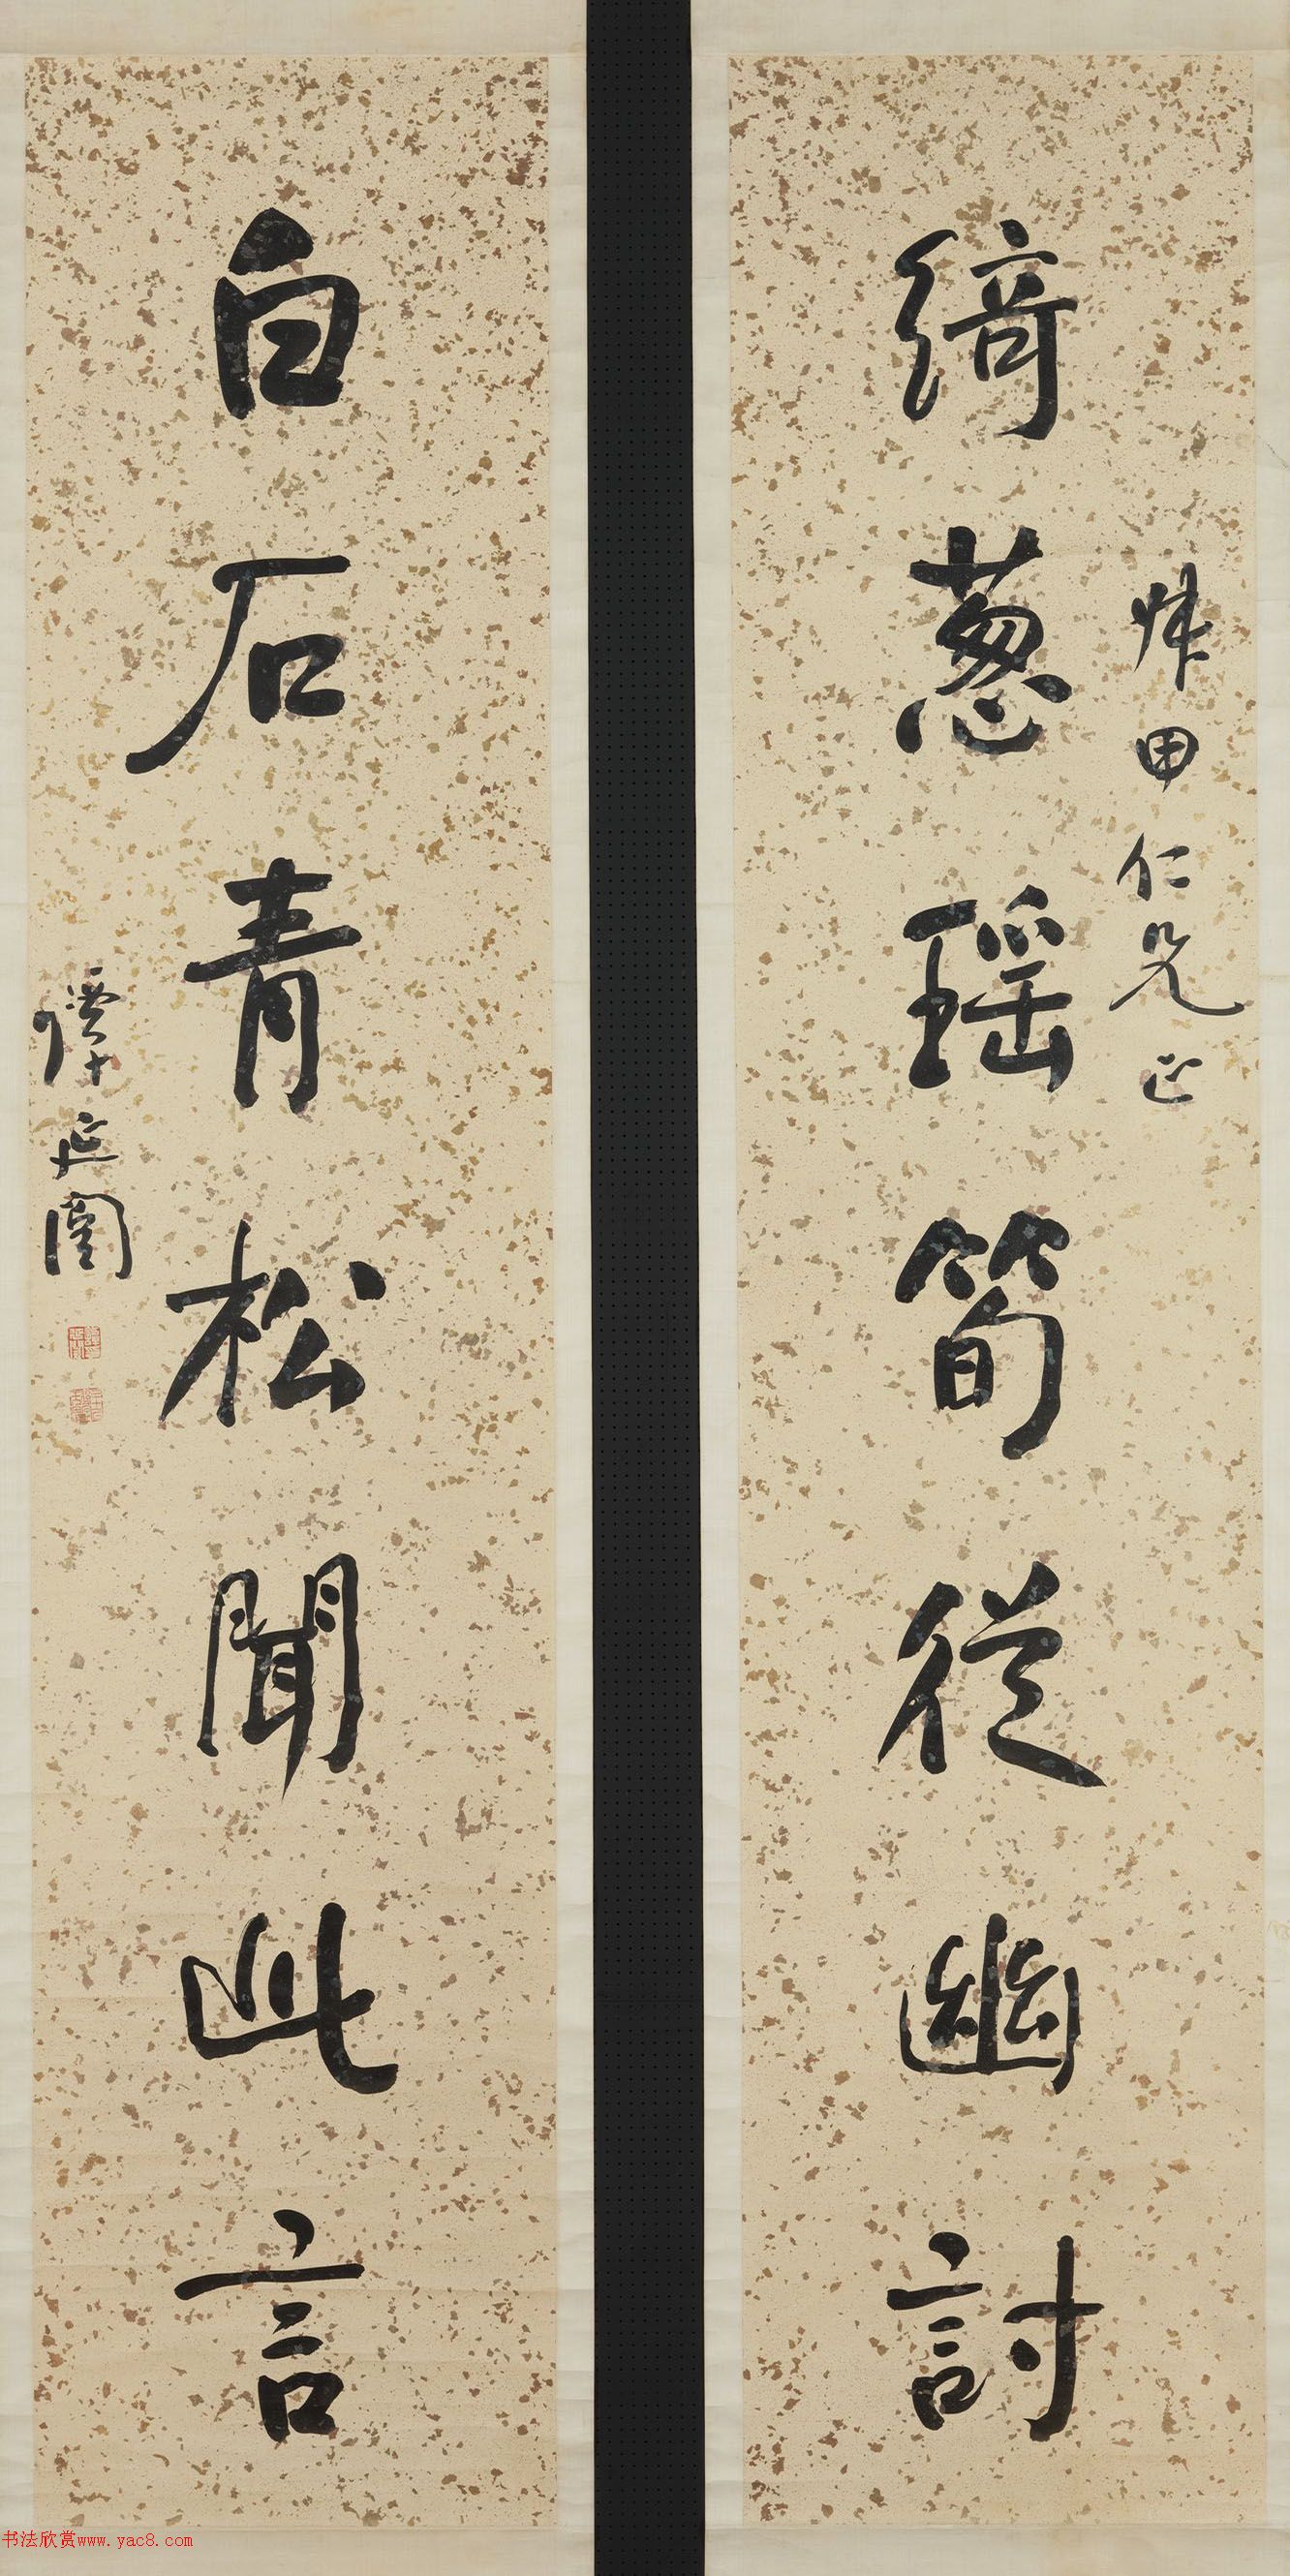 綺蔥瑤筍從幽討
甲仁兄正
白石青松聞此言
譚延闓
书法欣赏www.yac8.com